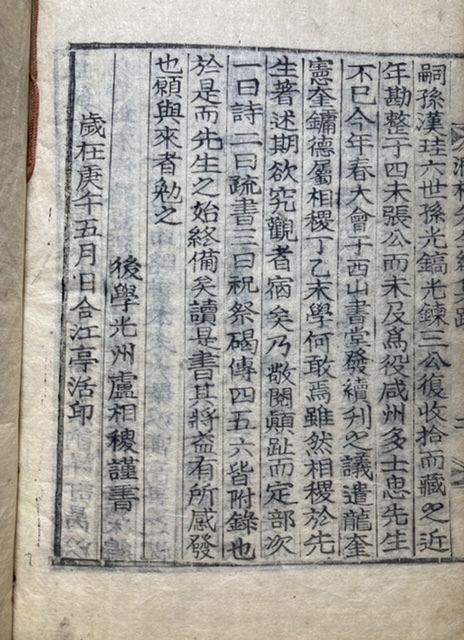 嗣孫漢珪六世孫光鎬光鍊三公復收拾而藏之近
年勘整于四未張公而未及爲役咸州多士患先生
不巳今年春大會于西山書堂發續刋之議遣龍奎
憲奎鏞德屬相稷丁乙末學何敢焉雖然相稷於先
生著述期欲究觀者病矣乃敬閱顚趾而定部次
一曰詩二曰疏書三曰祝祭碣傳四五六皆附錄也
於是而先生之始終備矣讀是書其將益有所感發
也願與來者勉之
後學光州盧相稷謹書
歲在庚午五月日合江亭活印